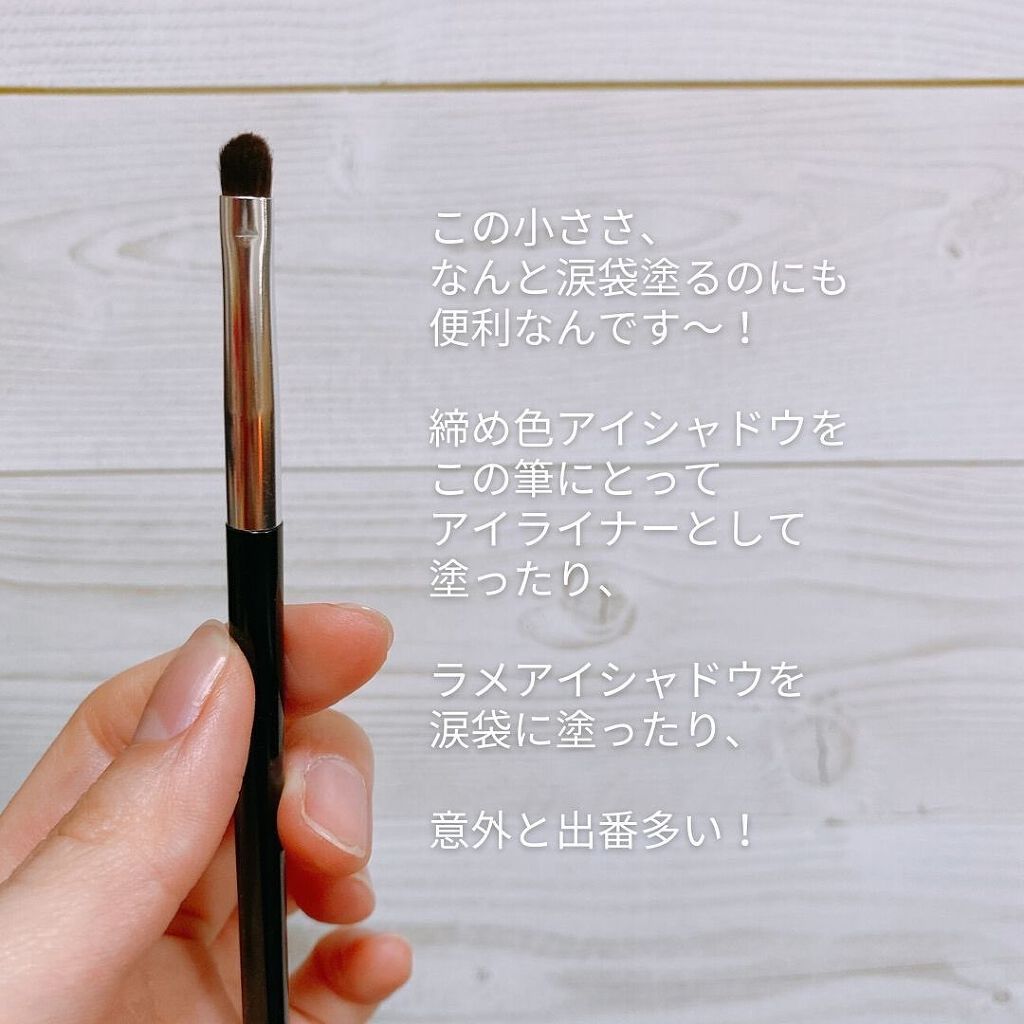 この小ささ、
なんと涙袋塗るのにも
便利なんです〜！
締め色アイシャドウを
この筆にとって
アイライナーとして
塗ったり、
ラメアイシャドウを
涙袋に塗ったり、
意外と出番多い！